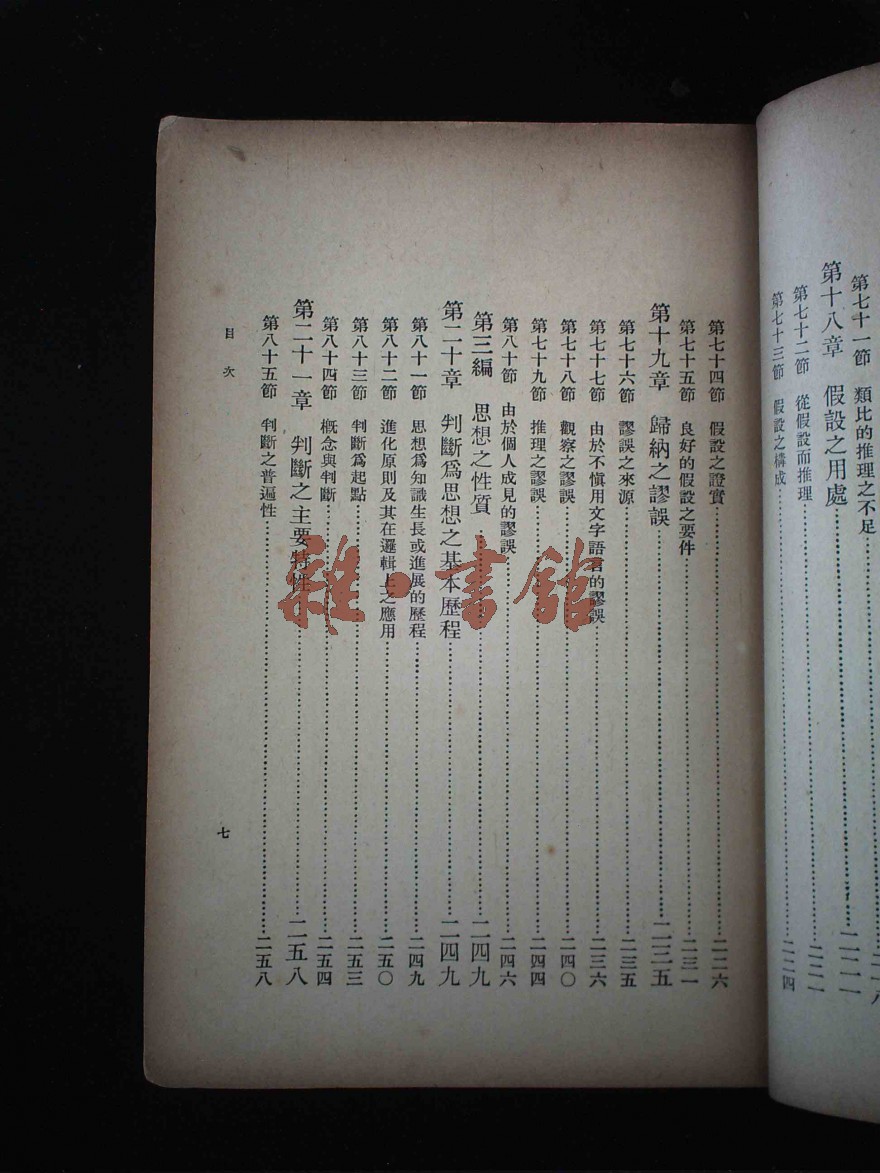 第七十一節 類比的推理之不足
第十八章 假設之用處……二二一
第七十二節 從假設而推理……二二一
第七十三節 假設之構成……二二四
第七十四節 假設之證實……二二六
第七十五節 良好的假設之要件……二三一
第十九章 歸納之謬誤……二三五
第七十六節 謬誤之來源……二三五
第七十七節 由於不愼用文字語言的謬誤……二三六
第七十八節 觀察之謬誤……二四〇
第七十九節 推理之謬誤……二四四
第八十節 由於個人成見的謬誤……二四六
第三編 思想之性質……二四九
第二十章 判斷爲思想之基本歷程……二四九
第八十一節 思想爲知識生長或進展的歷程……二四九
第八十二節 進化原則及其在邏輯上之應用……二五〇
第八十三節 判斷爲起點……二五三
第八十四節 概念與判斷……二五四
第二十一章 判斷之主要特性……二五八
第八十五節 判斷之普遍性……二五八
目次
七
雜·書館